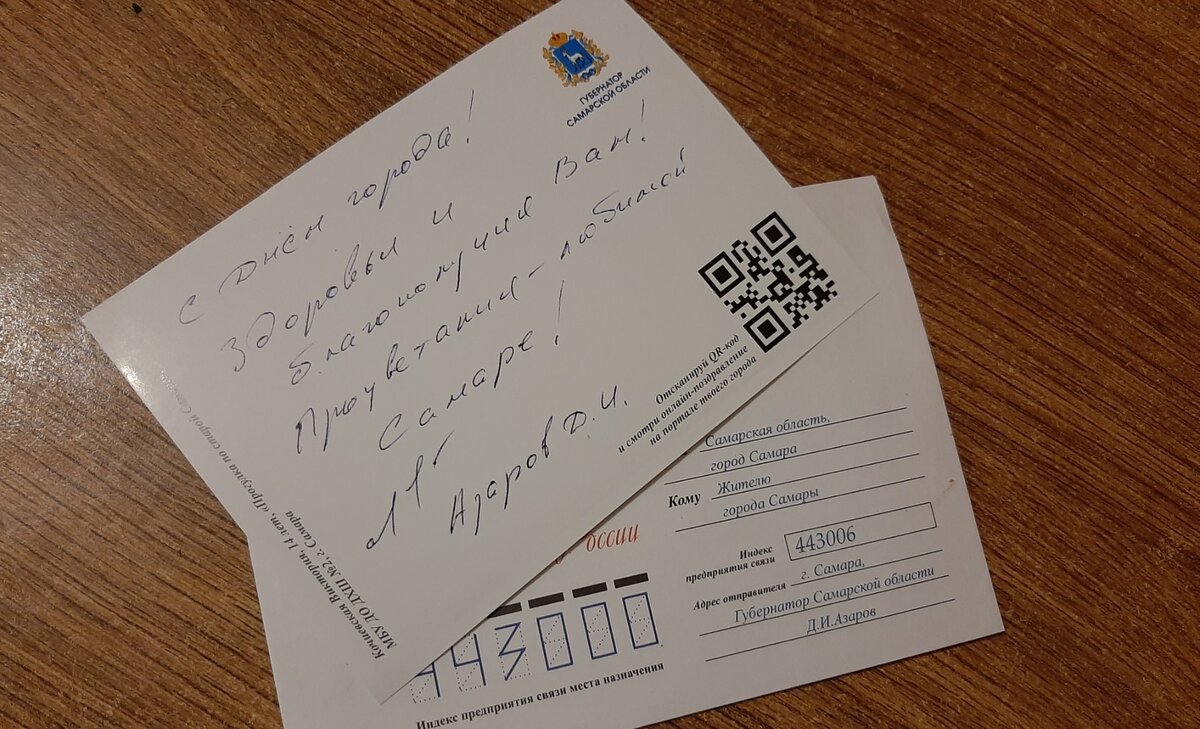 ГУБЕРНАТОР
САМАРСКОЙ ОБЛАСТИ
С Днём города!
Здоровья и
благополучия Вам!
Процветания - любимой
Самаре!
Азаров Д.И.
Отсканируй QR-код
и смотри онлайн-поздравление
на портале твоего города
Кочневская Виктория, 14 лет, «Прогулка по старой
МБУ ДО ДХШ №2, г. Самара
оссии
Самарская область,
город Самара
Кому Жителю
города Самары
Индекс
предприятия связи 443006
Адрес отправителя г. Самара,
Губернатор Самарской области
Д.И.Азаров
443000
Индекс предприятия связи места назначения